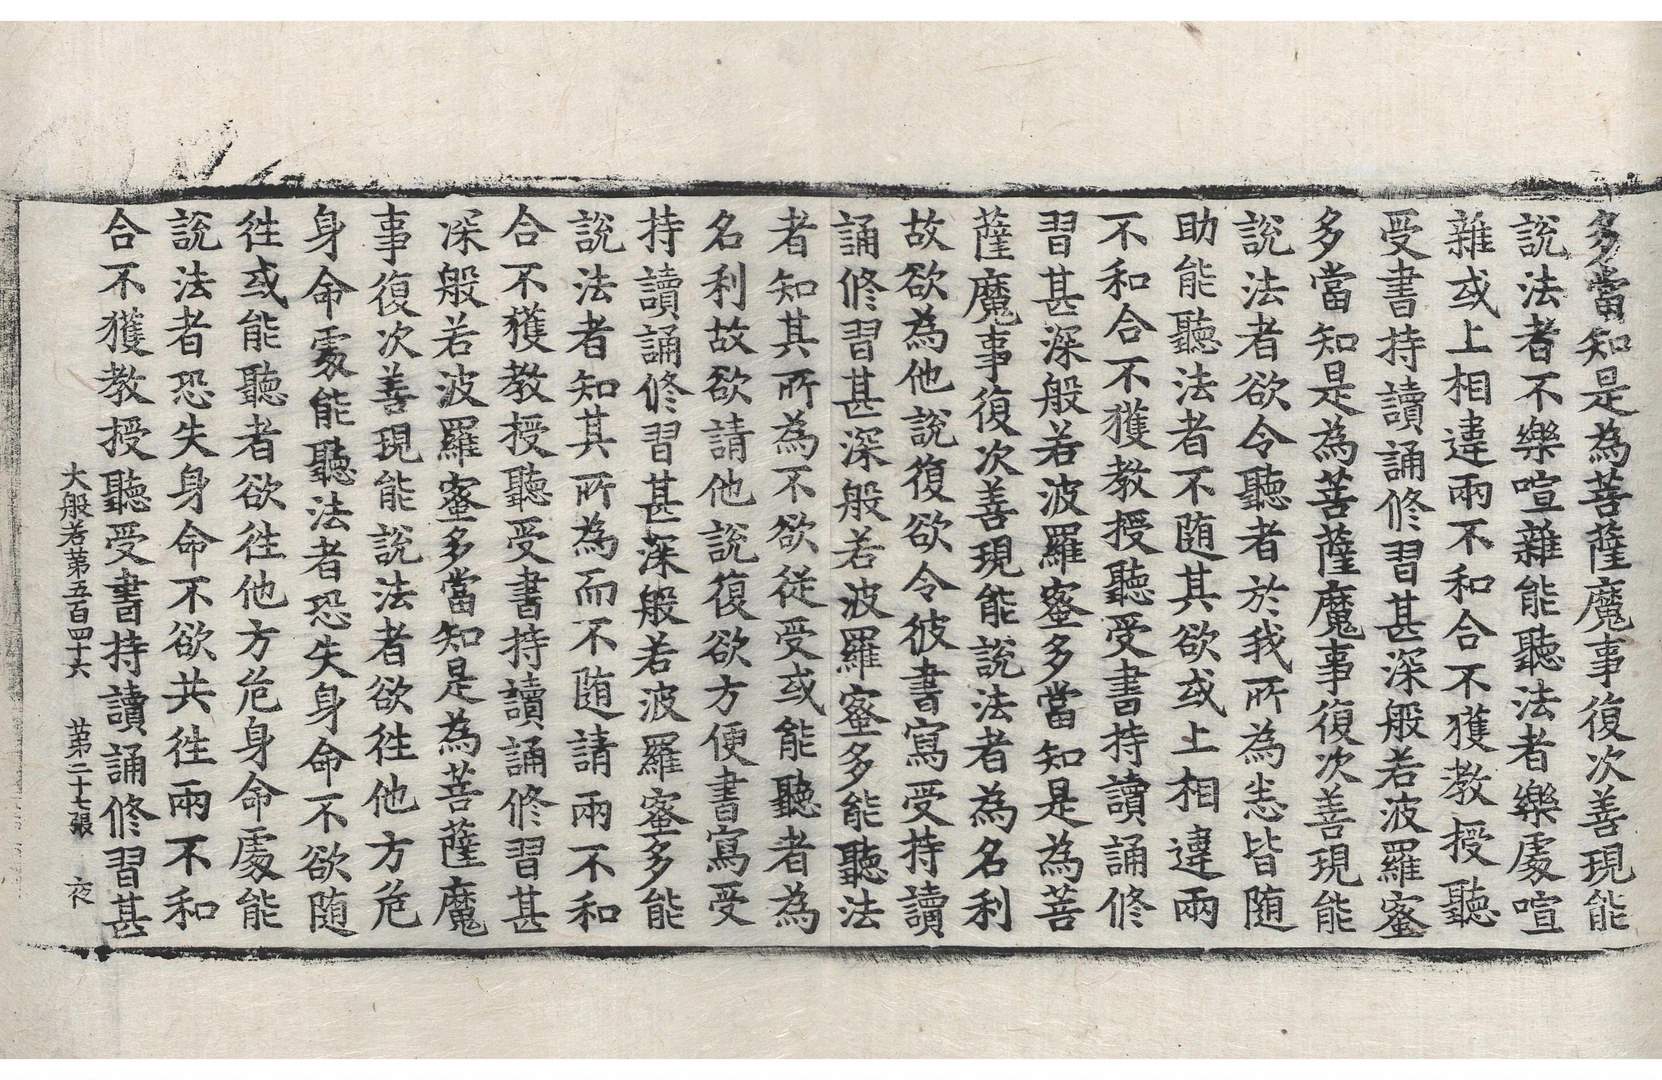 多當知是為菩薩魔事復次善現能
說法者不樂喧雜能聽法者樂處喧
雜或上相違兩不和合不獲教授聽
受書持讀誦修習甚深般若波羅蜜
多當知是為菩薩魔事復次善現能
說法者欲令聽者於我所為悉皆随
助能聽法者不随其欲或上相違兩
不和合不獲教授聽受書持讀誦修
習甚深般若波羅蜜多當知是為菩
薩魔事復次善現能說法者為名利
故欲為他說復欲令彼書寫受持讀
誦修習甚深般若波羅蜜多能聽法
者知其所為不欲從受或能聽者為
名利故欲請他說復欲方便書寫受
持讀誦修習甚深般若波羅蜜多能
說法者知其所為而不随請兩不和
合不獲教授聽受書持讀誦修習甚
深般若波羅蜜多當知是為菩薩魔
事復次善現能說法者欲往他方危
身命處能聽法者恐失身命不欲随
往或能聽者欲往他方危身命處能
說法者恐失身命不欲共往兩不和
合不獲教授聽受書持讀誦修習甚
大般若第五百四十六 第二十七張 夜